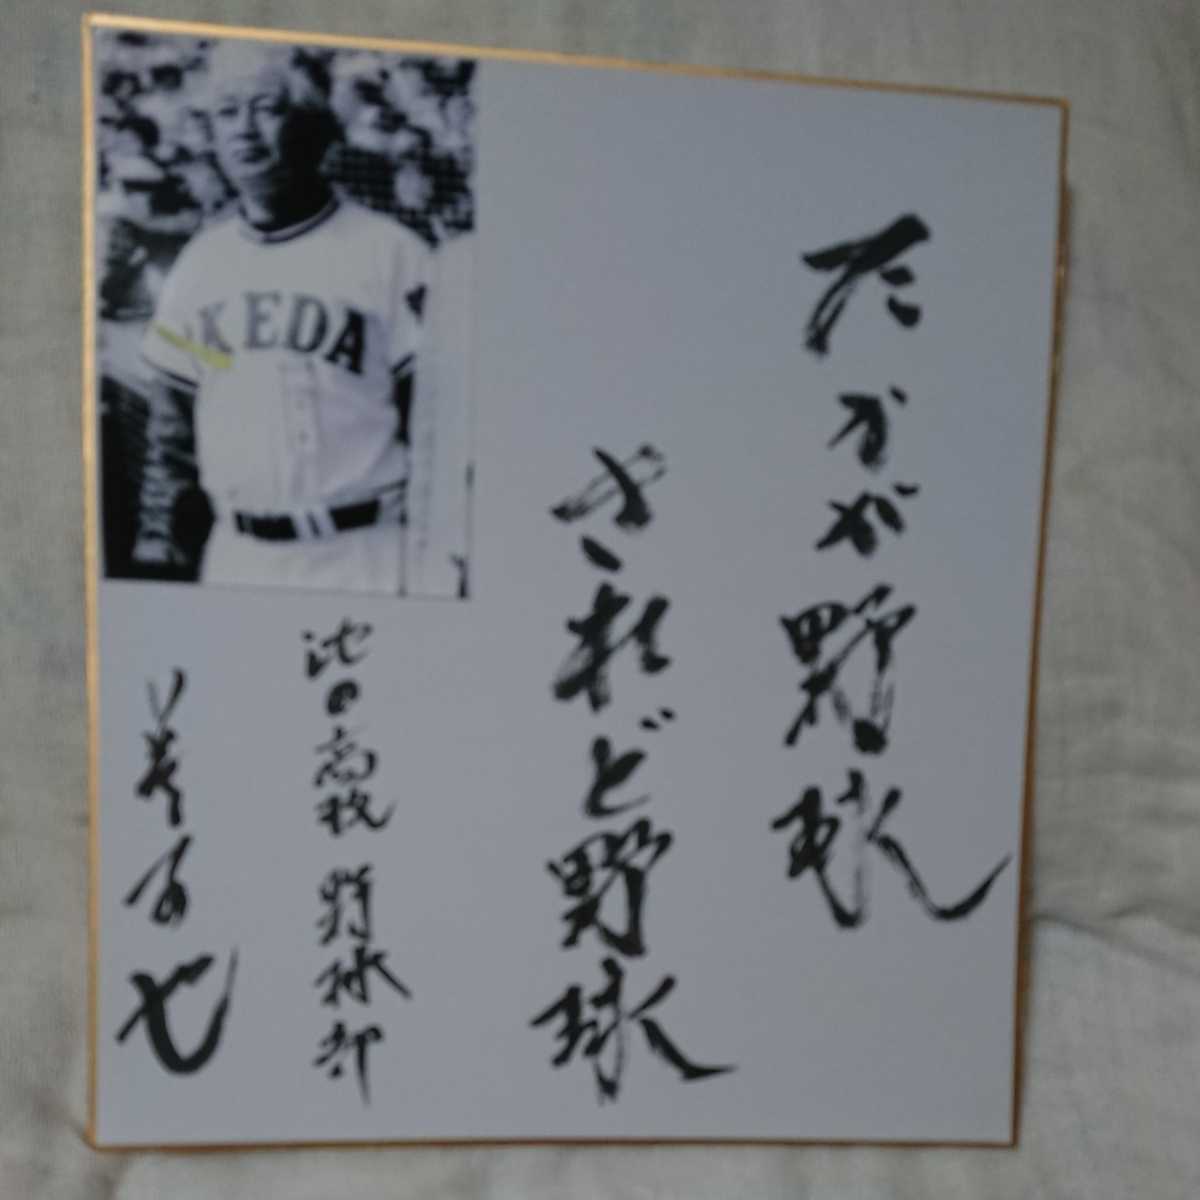 たかが野球
されど野球
池田高校野球部
蔦文也
IKEDA